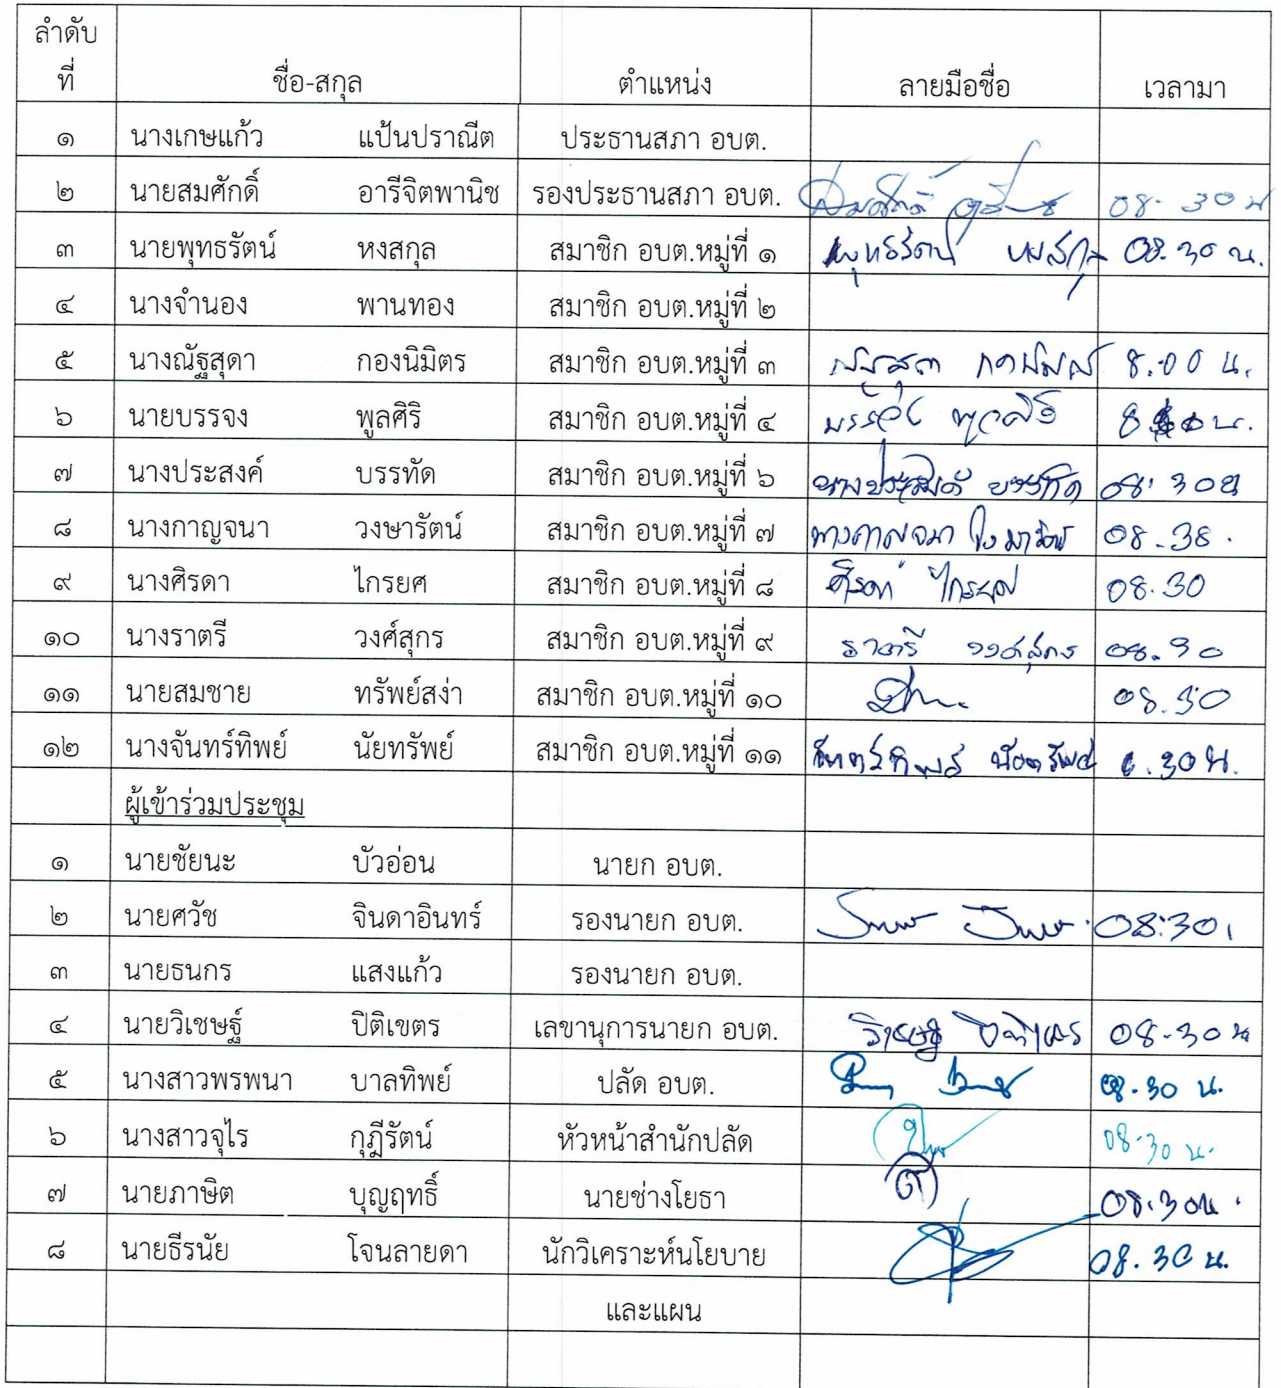 ลำดับที่ ชื่อ-สกุล ตำแหน่ง ลายมือชื่อ เวลามา
๑ นางเกษแก้ว แป้นปราณีต ประธานสภา อบต.
๒ นายสมศักดิ์ อารีจิตพานิช รองประธานสภา อบต. 08.30 น
๓ นายพุทธรัตน์ หงสกุล สมาชิก อบต.หมู่ที่ ๑ พุทธรัตน์ หงสกุล 08.30 น.
๔ นางจำนอง พานทอง สมาชิก อบต.หมู่ที่ ๒
๕ นางณัฐสุดา กองนิมิตร สมาชิก อบต.หมู่ที่ ๓ 8.00 น.
๖ นายบรรจง พูลศิริ สมาชิก อบต.หมู่ที่ ๔ บรรจง พูลศิริ
๗ นางประสงค์ บรรทัด สมาชิก อบต.หมู่ที่ ๖ นางประสงค์ บรรทัด 08:30น
๘ นางกาญจนา วงษารัตน์ สมาชิก อบต.หมู่ที่ ๗ นางกาญจนา วงษารัตน์ 08.38.
๙ นางศิรดา ไกรยศ สมาชิก อบต.หมู่ที่ ๘ ศิรดา ไกรยศ 08.30
๑๐ นางราตรี วงศ์สุกร สมาชิก อบต.หมู่ที่ ๙ ราตรี วงศ์สุกร 08.30
๑๑ นายสมชาย ทรัพย์สง่า สมาชิก อบต.หมู่ที่ ๑๐ 08.30
๑๒ นางจันทร์ทิพย์ นัยทรัพย์ สมาชิก อบต.หมู่ที่ ๑๑ จันทร์ทิพย์ นัยทรัพย์ 8.30 น.
ผู้เข้าร่วมประชุม
๑ นายชัยนะ บัวอ่อน นายก อบต.
๒ นายศวัช จินดาอินทร์ รองนายก อบต. 08:30
๓ นายธนกร แสงแก้ว รองนายก อบต.
๔ นายวิเชษฐ์ ปิติเขตร เลขานุการนายก อบต. วิเชษฐ์ ปิติเขตร 08.30 น
๕ นางสาวพรพนา บาลทิพย์ ปลัด อบต. 08.30 น.
๖ นางสาวจุไร กุฎีรัตน์ หัวหน้าสำนักปลัด 08.30 น.
๗ นายภาษิต บุญฤทธิ์ นายช่างโยธา 08.30น.
๘ นายธีรนัย โจนลายดา นักวิเคราะห์นโยบาย 08.30 น.
และแผน